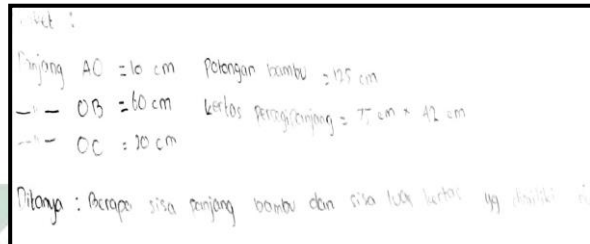 Panjang AO = 10 cm Potongan bambu = 125 cm
—"— OB = 60 cm kertas persegi panjang = 75 cm × 42 cm
—"— OC = 20 cm
Ditanya : Berapa sisa panjang bambu dan sisa luas kertas yg dimiliki